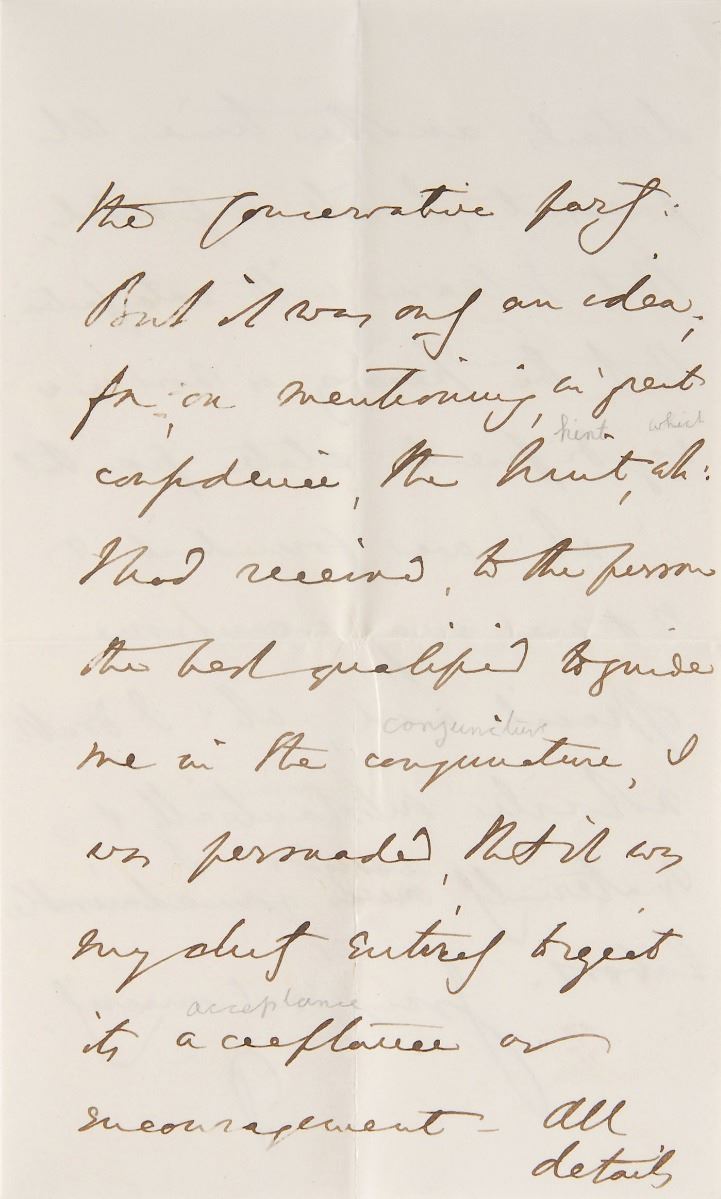 the Conservative party:
But it was only an idea;
for, on mentioning, in great
hint which
confidence, the hint, wh:
I had received, to the person
the best qualified to guide
conjuncture
me in the conjuncture, I
was persuaded, that it was
my duty entirely to reject
acceptance
its acceptance or
encouragement - All
details